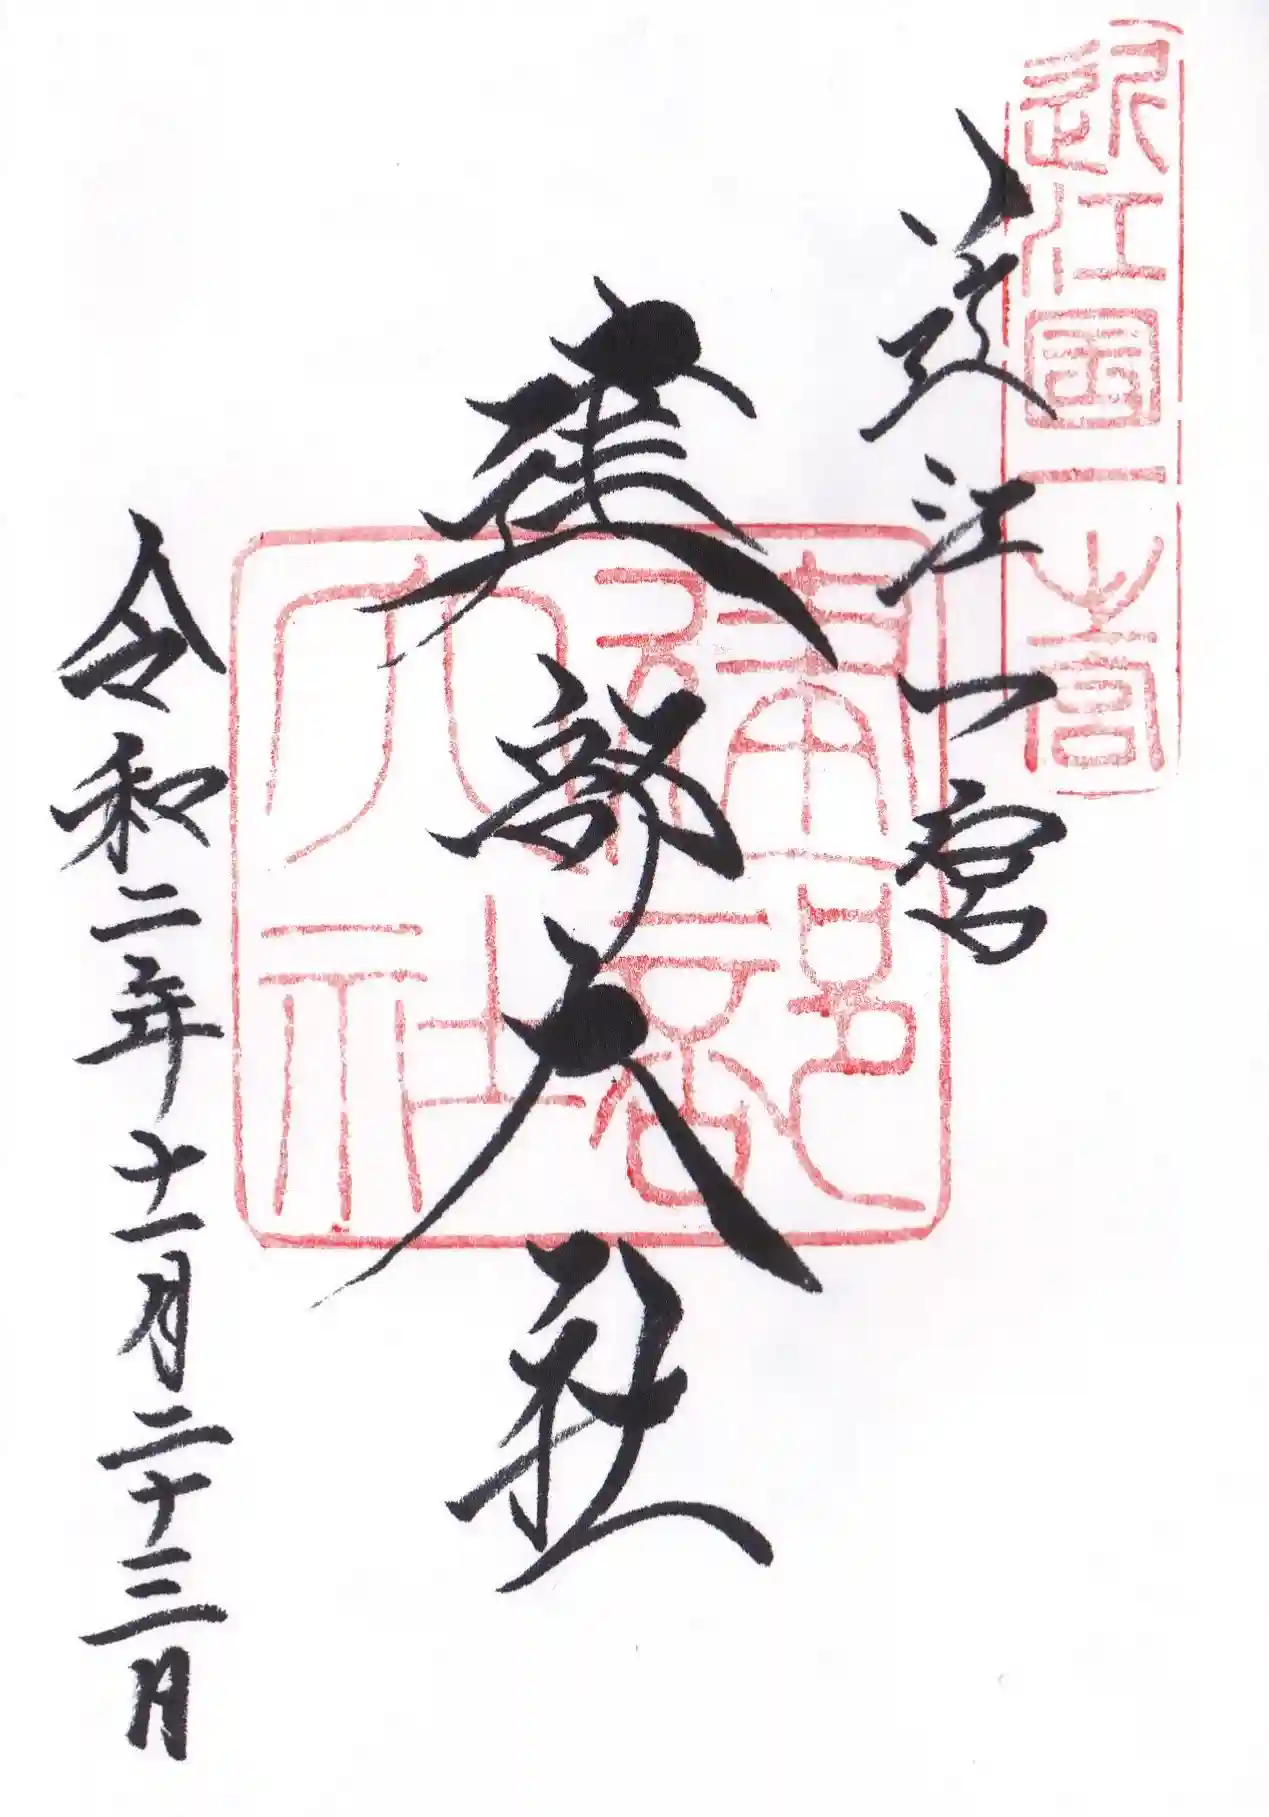 近江国一宮
近江一宮
建部大社
建部大社
令和二年十一月二十三日